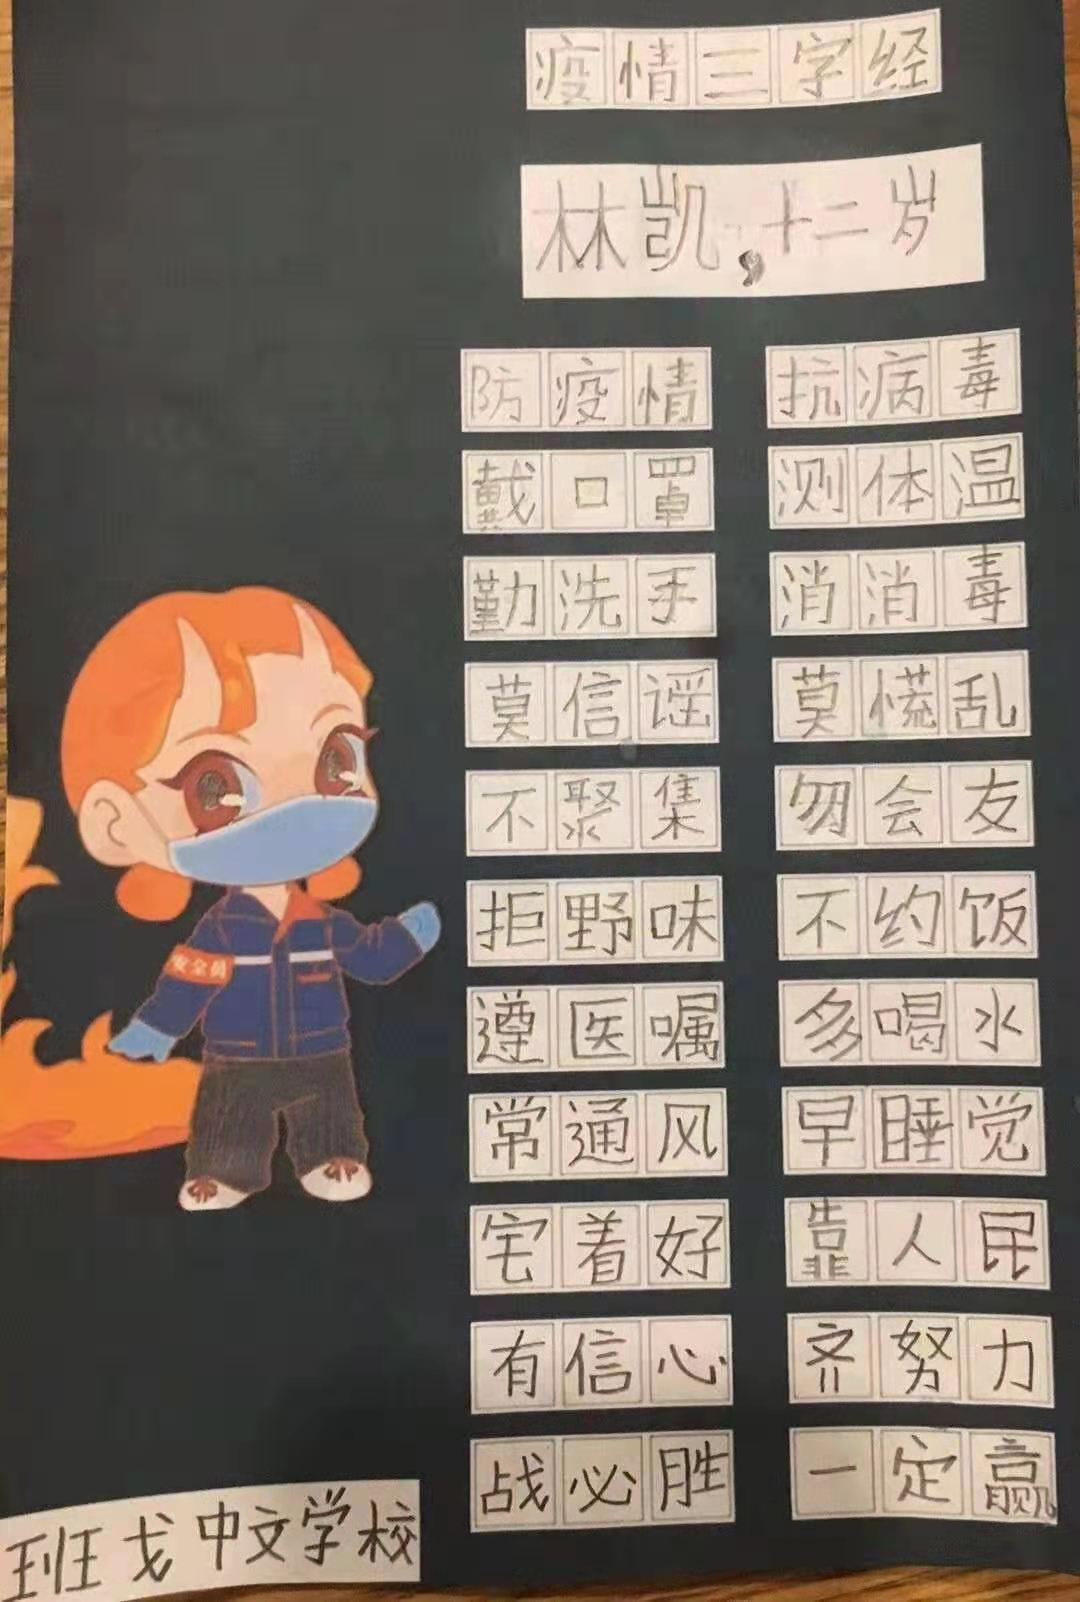 疫情三字经
林凯,十二岁
防疫情 抗病毒
戴口罩 测体温
勤洗手 消消毒
莫信谣 莫慌乱
不聚集 勿会友
拒野味 不约饭
遵医嘱 多喝水
常通风 早睡觉
宅着好 靠人民
有信心 齐努力
战必胜 一定赢
安全员
班戈中文学校